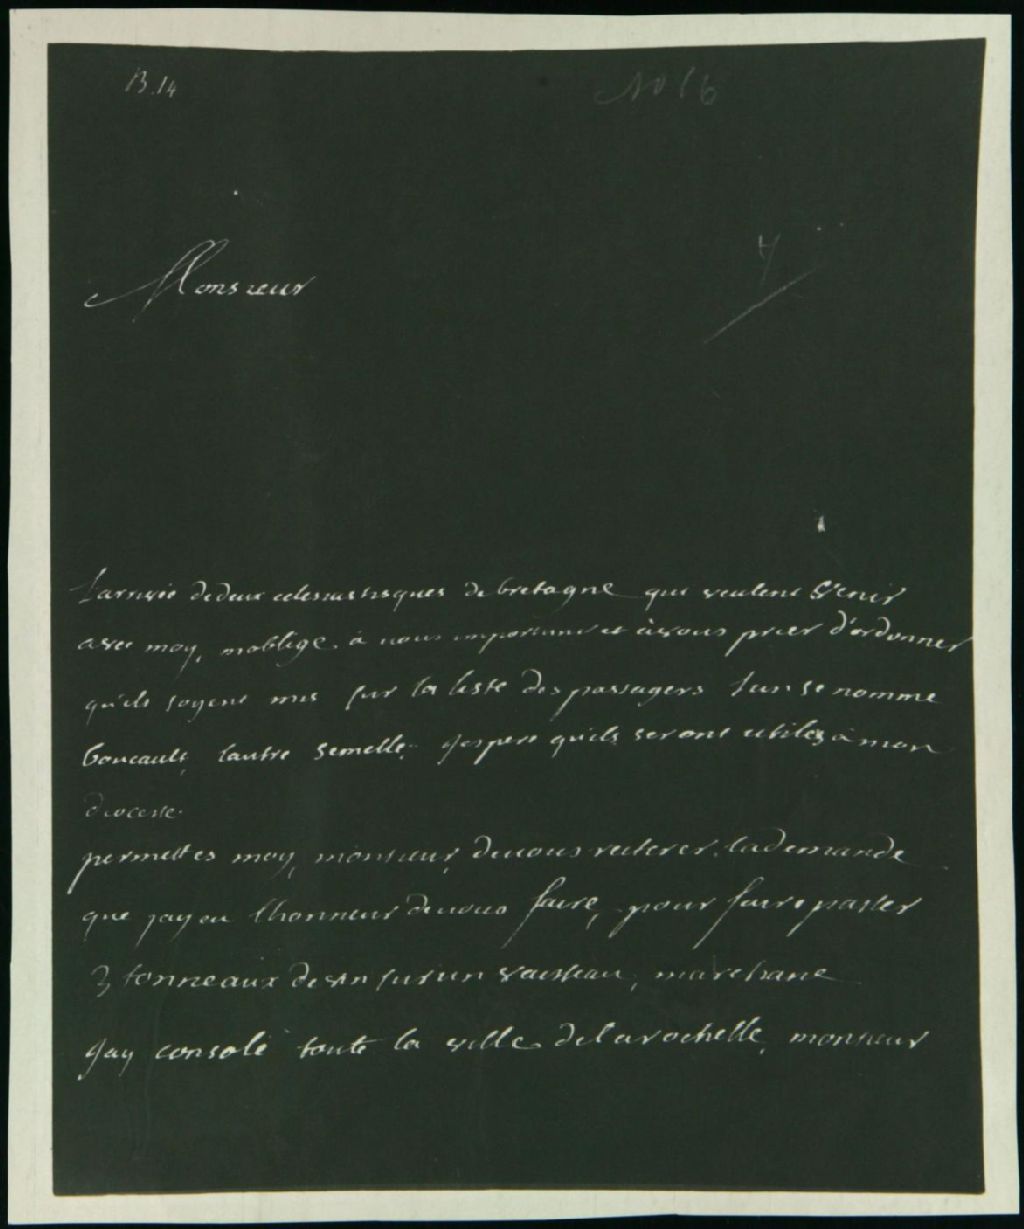 B.14
Monsieur
4
Larrivée de deux eclesiastiques de bretagne qui veulent venir
avec moy, moblige à vous importuner et à vous prier d'ordonner
qu'ils soyent mis sur la liste des passagers lun se nomme
boucault, lautre semelle. jespere qu'ils seront utiles à mon
diocesse.
permettes moy, monsieur, de vous reiterer la demande
que jay eu lhonneur de vous faire, pour faire passer
3 tonneaux de vin sur un vaisseau, marchant
jay consolé toute la ville de la rochelle, monsieur